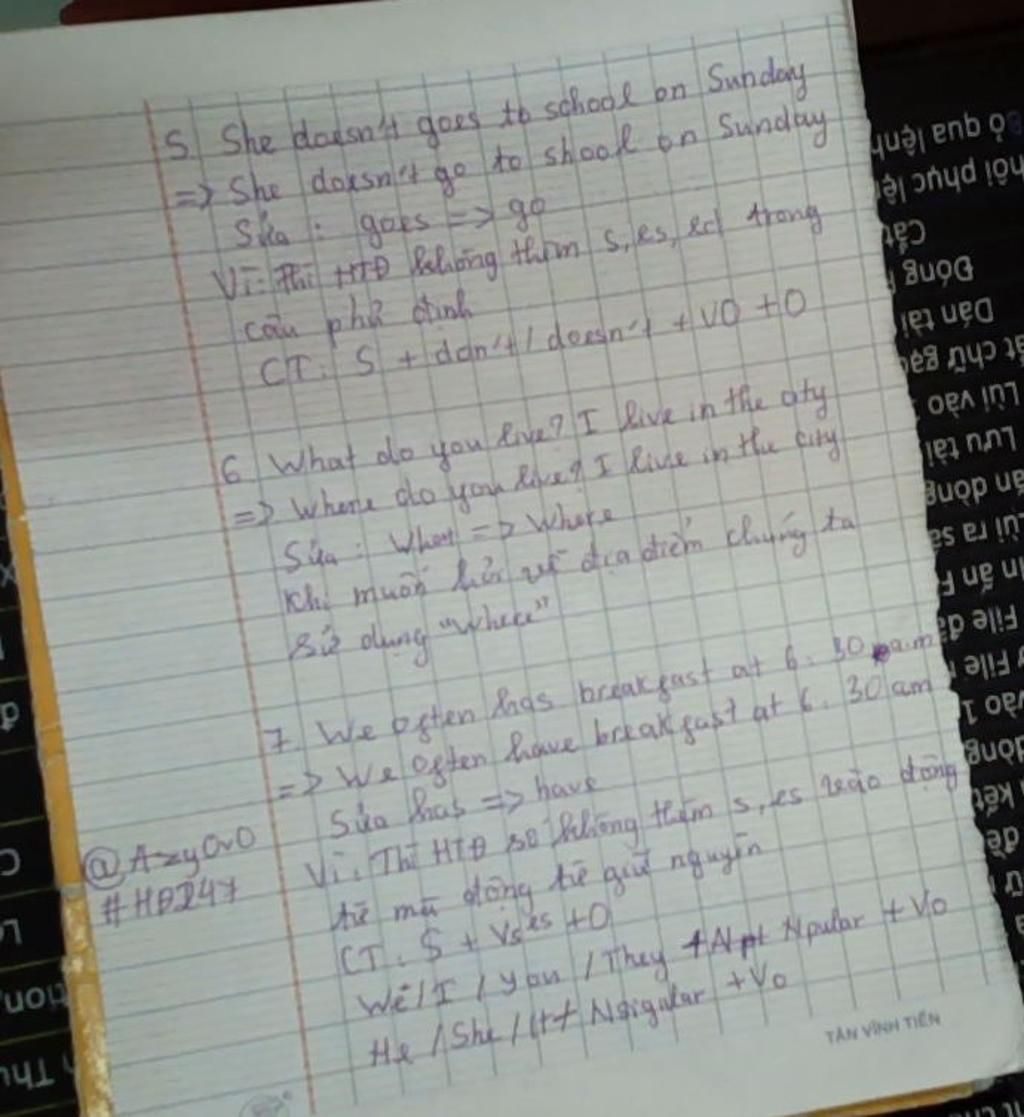 5. She doesn't goes to school on Sunday
=> She doesn't go to shool on Sunday
Sửa : goes => go
Vì: Thì HTĐ không thêm s, es, ed trong
câu phủ định
CT: S + don't / doesn't + V0 + O
6 What do you live? I live in the city
=> Where do you live? I live in the city
Sửa : What => Where
Khi muốn hỏi về địa điểm chúng ta
sử dụng "Where"
7. We often has breakfast at 6.30 a.m
=> We often have breakfast at 6.30 am
Sửa has => have
Vì: Thì HTĐ sẽ không thêm s, es vào động
từ mà động từ giữ nguyên
CT: S + Vs es + O
We / I / you / They + Npular + Vo
He / She / It + Nsigular + Vo
@AzyOvO
#HĐ247
TÂN VĨNH TIẾN
ỏ qua lệnh
Đóng
Dán tải
Lùi vào
Lưu tải
File